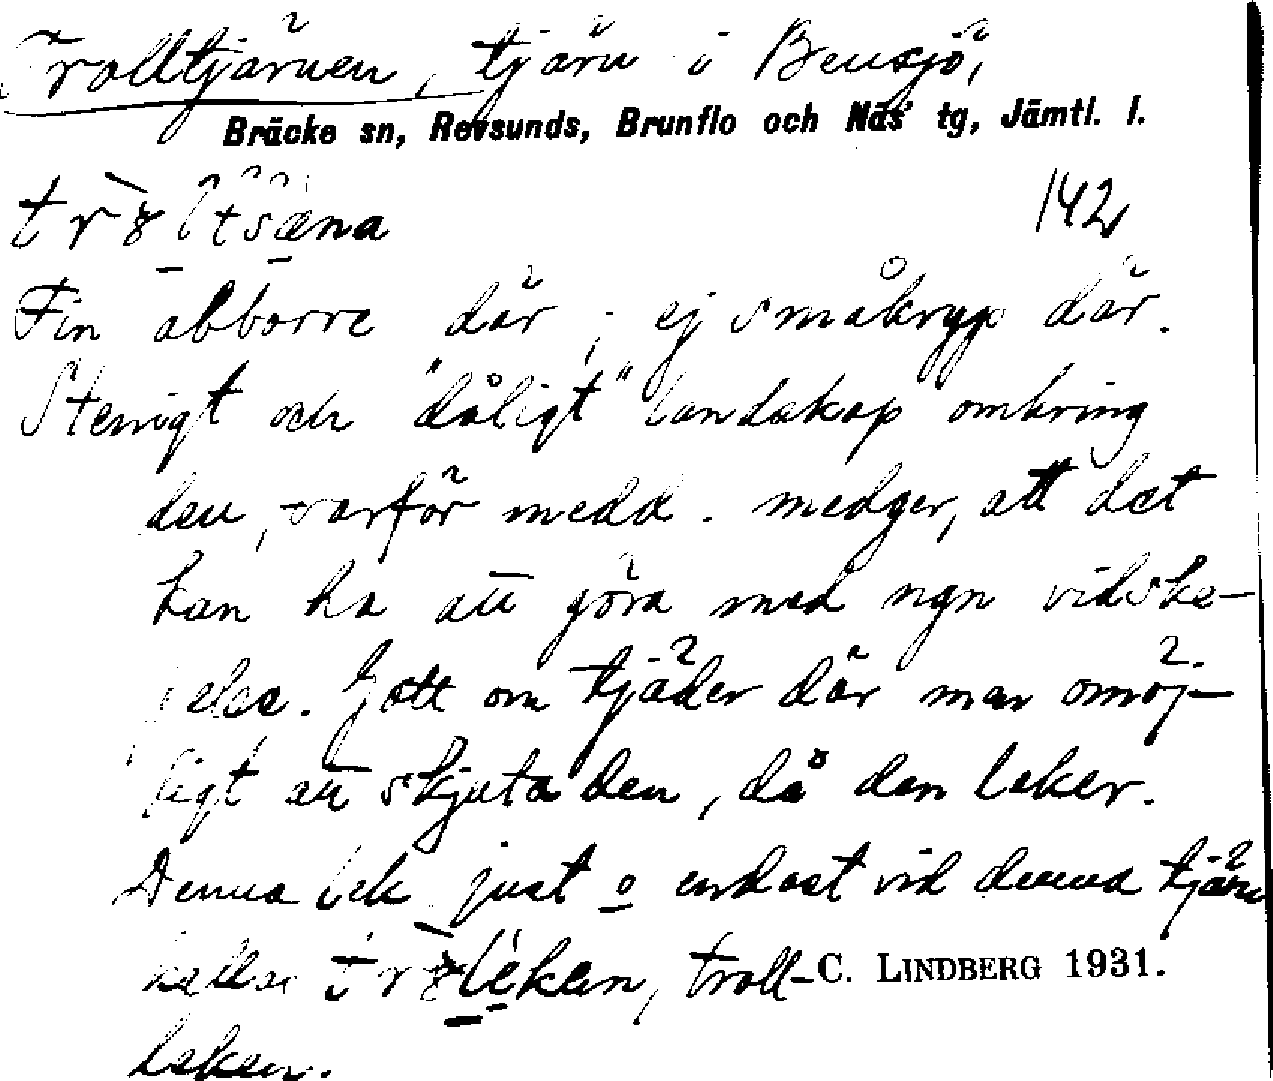 Trolltjärnen, tjärn i Bensjö,
Bräcke sn, Revsunds, Brunflo och Näs tg, Jämtl. l.
142
Fin abborre där; ej småkryp där.
Stenigt och "dåligt" landskap omkring
den, varför medd. medger, att det
kan ha att göra med ngn vidske-
pelse. Gott om tjäder där men omöj-
ligt att skjuta den, då den leker.
Denna lek just o endast vid denna tjärn
kallas troll-
C. LINDBERG 1931.
leken.